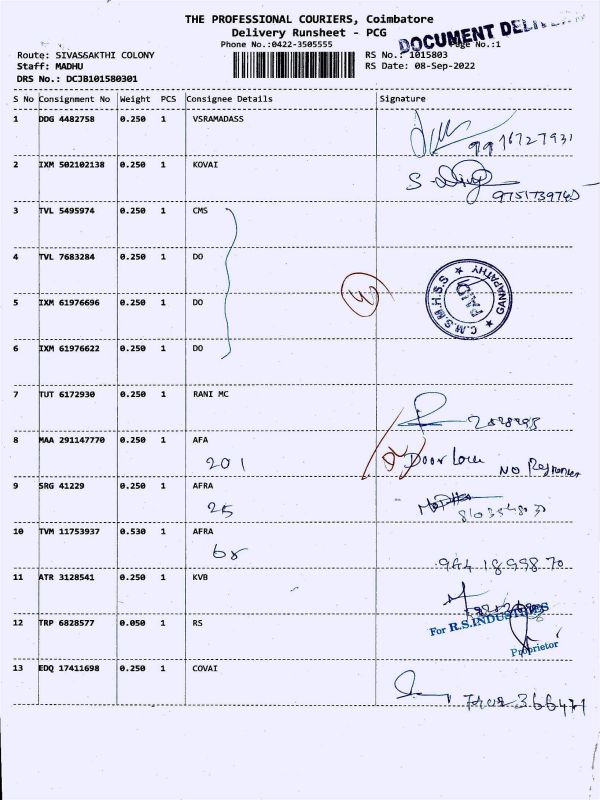 THE PROFESSIONAL COURIERS, Coimbatore
Delivery Runsheet - PCG
Phone No.:0422-3505555
DOCUMENT DELIVERY
Page No.:1
Route: SIVASGAKTHI COLONY
RS No.: 1015803
Staff: MADHU
RS Date: 08-Sep-2022
DRS No.: DCJB101580301
S No Consignment No Weight PCS Consignee Details Signature
1 DDG 4482758 0.250 1 VSRAMADASS
9916727931
2 IXM 502102138 0.250 1 KOVAI
9751739740
3 TVL 5495974 0.250 1 CMS
4 TVL 7683284 0.250 1 DO
5 IXM 61976696 0.250 1 DO
C.M.S.M.H.S.S. GANAPATHY
6 IXM 61976622 0.250 1 DO
7 TUT 6172930 0.250 1 RANI MC
8 MAA 291147770 0.250 1 AFA
201 Door Lock NO Response
9 SRG 41229 0.250 1 AFRA
25
10 TVM 11753937 0.530 1 AFRA
68
944 1899870
11 ATR 3128541 0.250 1 KVB
12 TRP 6828577 0.050 1 RS
For R.S.INDUSTRIES
Proprietor
13 EDQ 17411698 0.250 1 COVAI